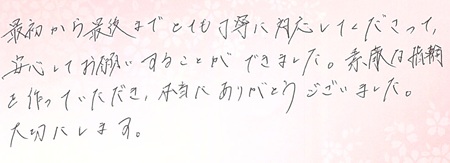 最初から最後までとても丁寧に対応してくださって、
安心してお願いすることができました。素敵な指輪
を作っていただき、本当にありがとうございました。
大切にします。